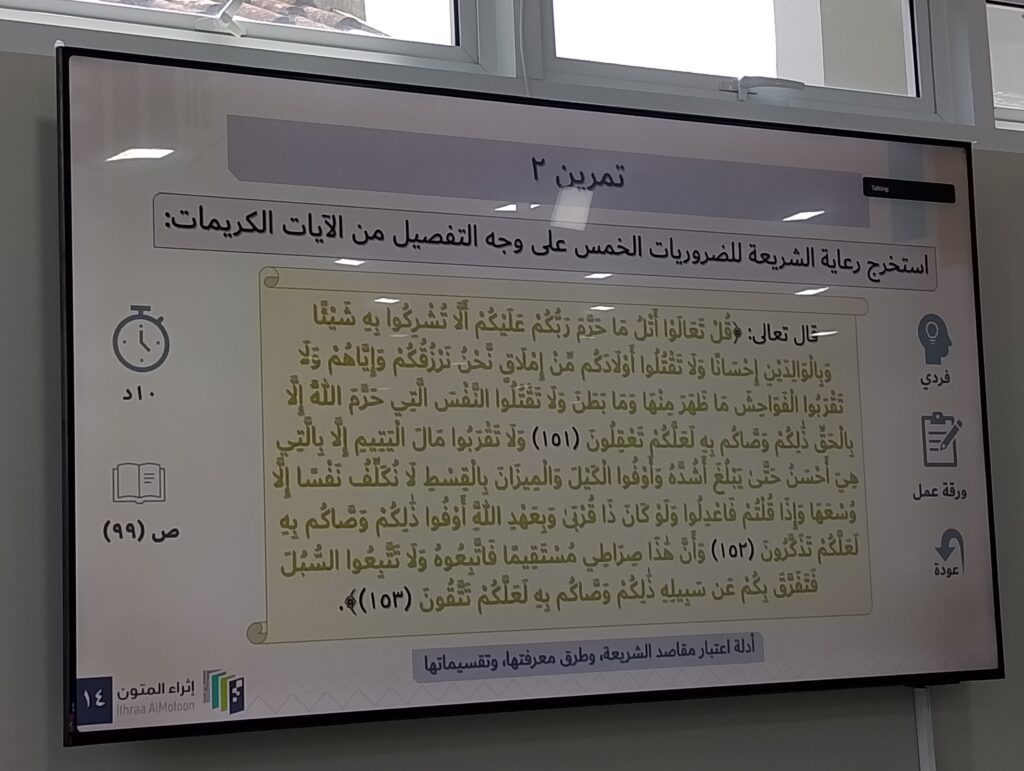 تمرين ٢
Talking
استخرج رعاية الشريعة للضروريات الخمس على وجه التفصيل من الآيات الكريمات:
قال تعالى: ﴿قُلْ تَعَالَوْا أَتْلُ مَا حَرَّمَ رَبُّكُمْ عَلَيْكُمْ أَلَّا تُشْرِكُوا بِهِ شَيْئًا
وَبِالْوَالِدَيْنِ إِحْسَانًا وَلَا تَقْتُلُوا أَوْلَادَكُم مِّنْ إِمْلَاقٍ نَّحْنُ نَرْزُقُكُمْ وَإِيَّاهُمْ وَلَا
تَقْرَبُوا الْفَوَاحِشَ مَا ظَهَرَ مِنْهَا وَمَا بَطَنَ وَلَا تَقْتُلُوا النَّفْسَ الَّتِي حَرَّمَ اللَّهُ إِلَّا
بِالْحَقِّ ذَٰلِكُمْ وَصَّاكُم بِهِ لَعَلَّكُمْ تَعْقِلُونَ (١٥١) وَلَا تَقْرَبُوا مَالَ الْيَتِيمِ إِلَّا بِالَّتِي
هِيَ أَحْسَنُ حَتَّىٰ يَبْلُغَ أَشُدَّهُ وَأَوْفُوا الْكَيْلَ وَالْمِيزَانَ بِالْقِسْطِ لَا نُكَلِّفُ نَفْسًا إِلَّا
وُسْعَهَا وَإِذَا قُلْتُمْ فَاعْدِلُوا وَلَوْ كَانَ ذَا قُرْبَىٰ وَبِعَهْدِ اللَّهِ أَوْفُوا ذَٰلِكُمْ وَصَّاكُم بِهِ
لَعَلَّكُمْ تَذَكَّرُونَ (١٥٢) وَأَنَّ هَٰذَا صِرَاطِي مُسْتَقِيمًا فَاتَّبِعُوهُ وَلَا تَتَّبِعُوا السُّبُلَ
فَتَفَرَّقَ بِكُمْ عَن سَبِيلِهِ ذَٰلِكُمْ وَصَّاكُم بِهِ لَعَلَّكُمْ تَتَّقُونَ (١٥٣)﴾.
فردي
ورقة عمل
عودة
١٠د
ص (٩٩)
أدلة اعتبار مقاصد الشريعة، وطرق معرفتها، وتقسيماتها
إثراء المتون
Ithraa AlMotoon
١٤